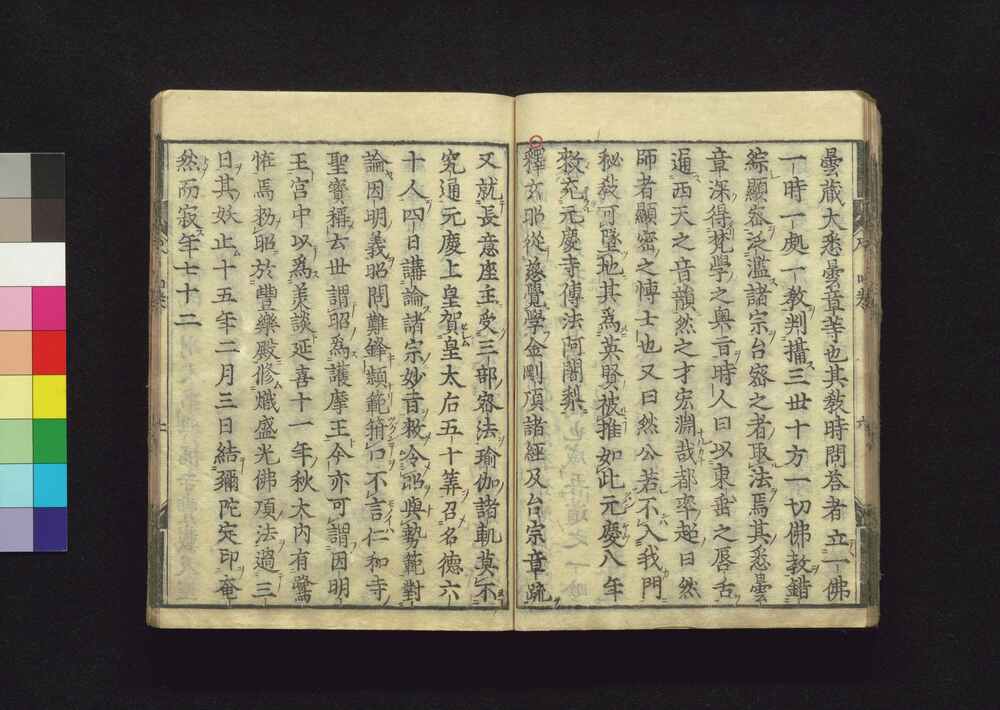 曇蔵大悉曇章等也其教時問答者立一佛
一時一處一教判攝三世十方一切佛教錯
綜顯密泛濫諸宗台密之者取法焉其悉曇
章深得梵學之奥旨時人曰以東垂之唇舌
通西天之音韻然之才宏淵哉都率超曰然
師者顯密之博士也又曰然公若不入我門
秘教可墜地其爲英賢被推如此元慶八年
敕充元慶寺傳法阿闍梨
釋玄昭從慈覺學金剛頂諸經及台宗章疏
又就長意座主受三部密法瑜伽諸軌莫不
究通元慶上皇賀皇太后五十筭召名德六
十人四日講論諸宗妙旨敕令昭與勢範對
論因明義昭問難鋒頴範箝口不言仁和寺
聖寶稱云世謂昭爲護摩王今亦可謂因明
王宮中以爲美談延喜十一年秋大内有鷺
恠焉敕昭於豐樂殿修熾盛光佛頂法過三
日其妖止十五年二月三日結彌陀定印奄
然而寂年七十二